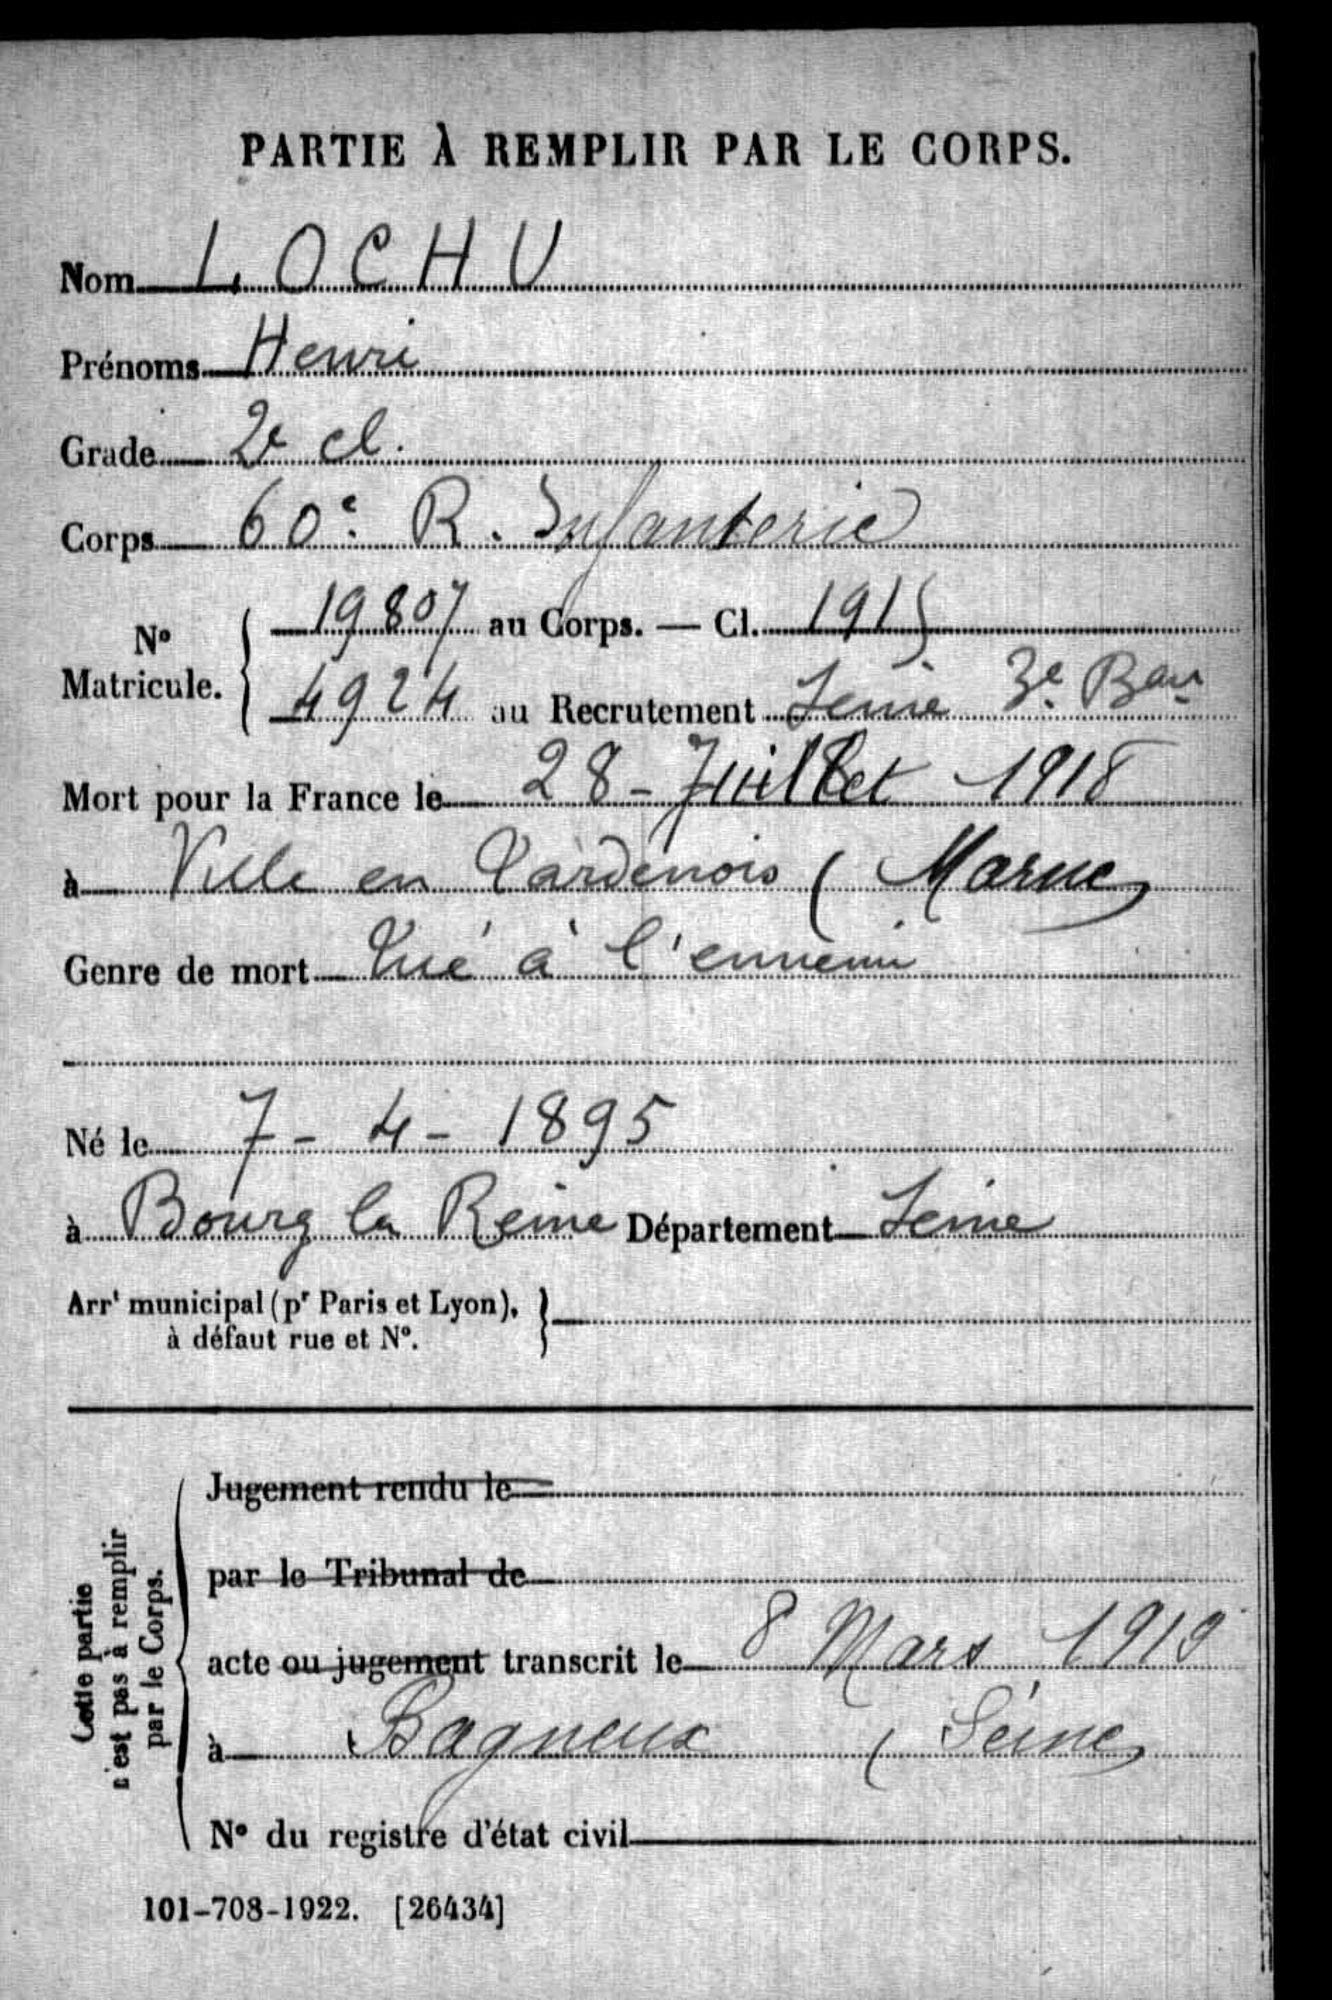 PARTIE À REMPLIR PAR LE CORPS.
Nom LOCHU
Prénoms Henri
Grade 2e cl.
Corps 60e R. Infanterie
No Matricule. 19807 au Corps. — Cl. 1915
4924 au Recrutement Seine 3e Bau
Mort pour la France le 28 - Juillet 1918
à Ville en Tardenois ( Marne
Genre de mort Tué à l'ennemi
Né le 7 - 4 - 1895
à Bourg la Reine Département Seine
Arrt municipal (pr Paris et Lyon),
à défaut rue et No.
Cette partie
n'est pas à remplir
par le Corps.
Jugement rendu le
par le Tribunal de
acte ou jugement transcrit le 8 Mars 1919
à Bagneux ( Seine
No du registre d'état civil
101-708-1922. [26434]